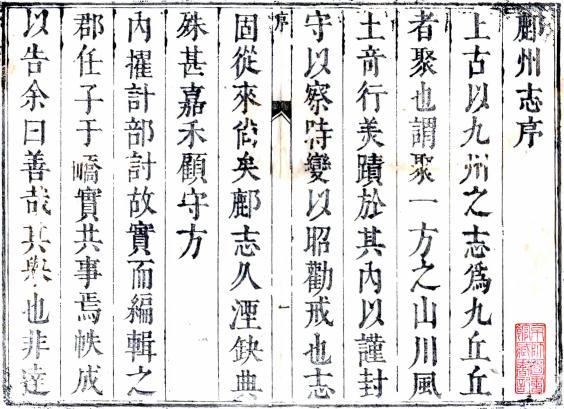 鄜州志序
上古以九州之志爲九丘丘
者聚也謂聚一方之山川風
土奇行美蹟於其內以謹封
守以察時變以昭勸戒也志
序
一
固從來尙矣鄜志久湮缺典
殊甚嘉禾顧守方
內擢計部討故實而編輯之
郡任子于嶠實共事焉帙成
以告余曰善哉其舉也非達